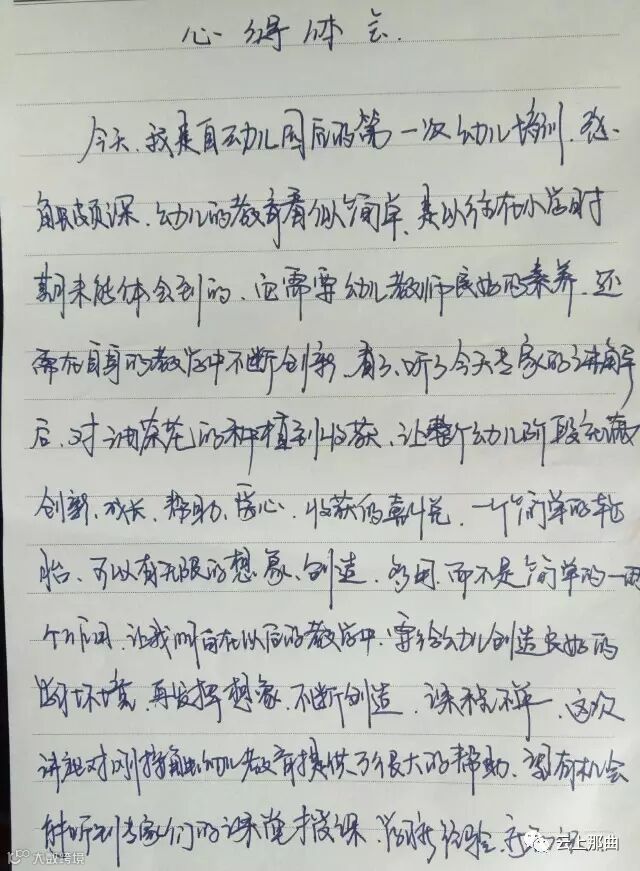 心得体会.
今天,我是自幼儿园后的第一次幼儿培训.感
触颇深.幼儿的教育看似简单,是以往在小学时
期未能体会到的、它需要幼儿教师良好的素养.还
需在自身的教学中不断创新.看了、听了今天专家的讲解
后.对油茶花的种植到收获.让整个幼儿阶段充满
创新、成长、帮助、爱心、收获的喜悦.一个简单的轮
胎、可以有无限的想象、创造.多用.而不是简单的一两
个作用.让我明白在以后的教学中.要给幼儿创造良好的
环境.再发挥想象.不断创造.课程不单一.这次
讲座对刚接触幼儿教育提供了很大的帮助、望有机会
能听到专家们的课堂授课.经验.
大数跨境
云上那曲